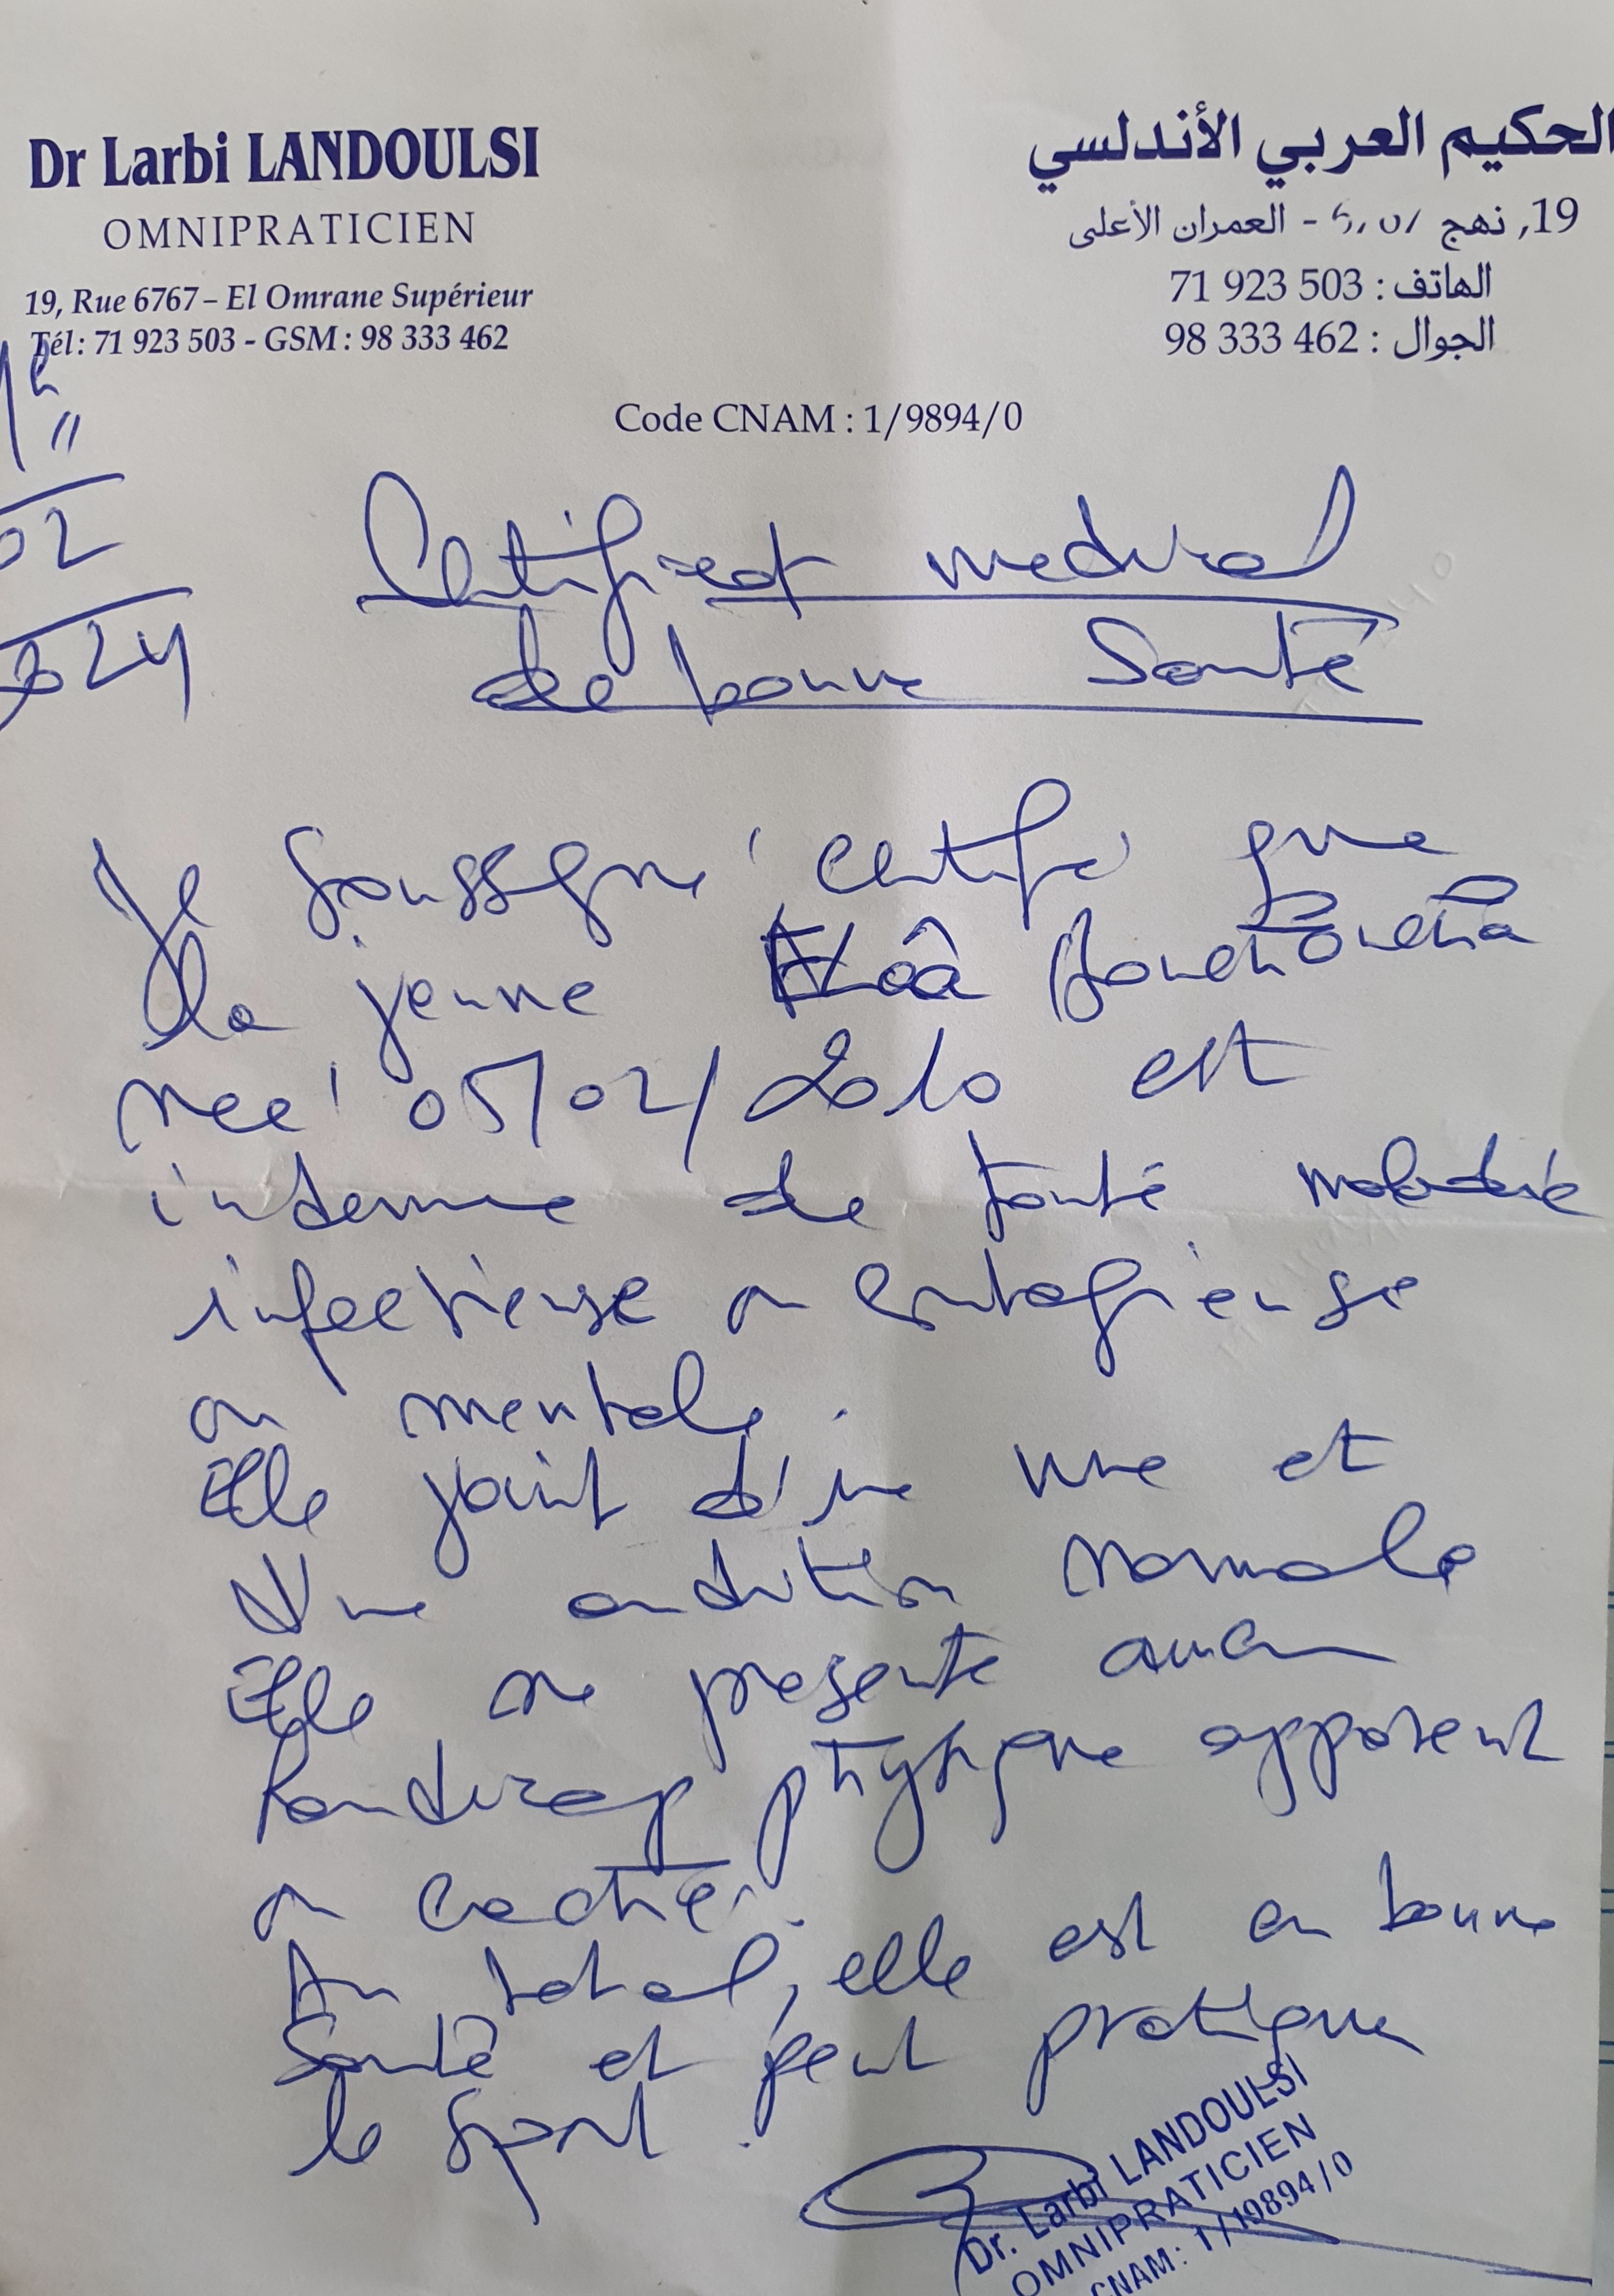 Dr Larbi LANDOULSI
OMNIPRATICIEN
19, Rue 6767 – El Omrane Supérieur
Tél : 71 923 503 - GSM : 98 333 462
الحكيم العربي الأندلسي
19, نهج - العمران الأعلى
الهاتف : 71 923 503
الجوال : 98 333 462
Code CNAM : 1/9894/0
02
2024
Certificat medical
de bonne Santé
Je soussigné certifie que
la jeune
née 05/02/2010 est
indemne de toute maladie
infectieuse ou contagieuse
ou mentale.
Elle jouit d'une vue et
d'une audition normale
Elle ne presente aucun
handicap physique apparent
ou caché.
Au total, elle est en bonne
Santé et peut pratiquer
le sport.
Dr. Larbi LANDOULSI
OMNIPRATICIEN
CNAM: 1/19894/0